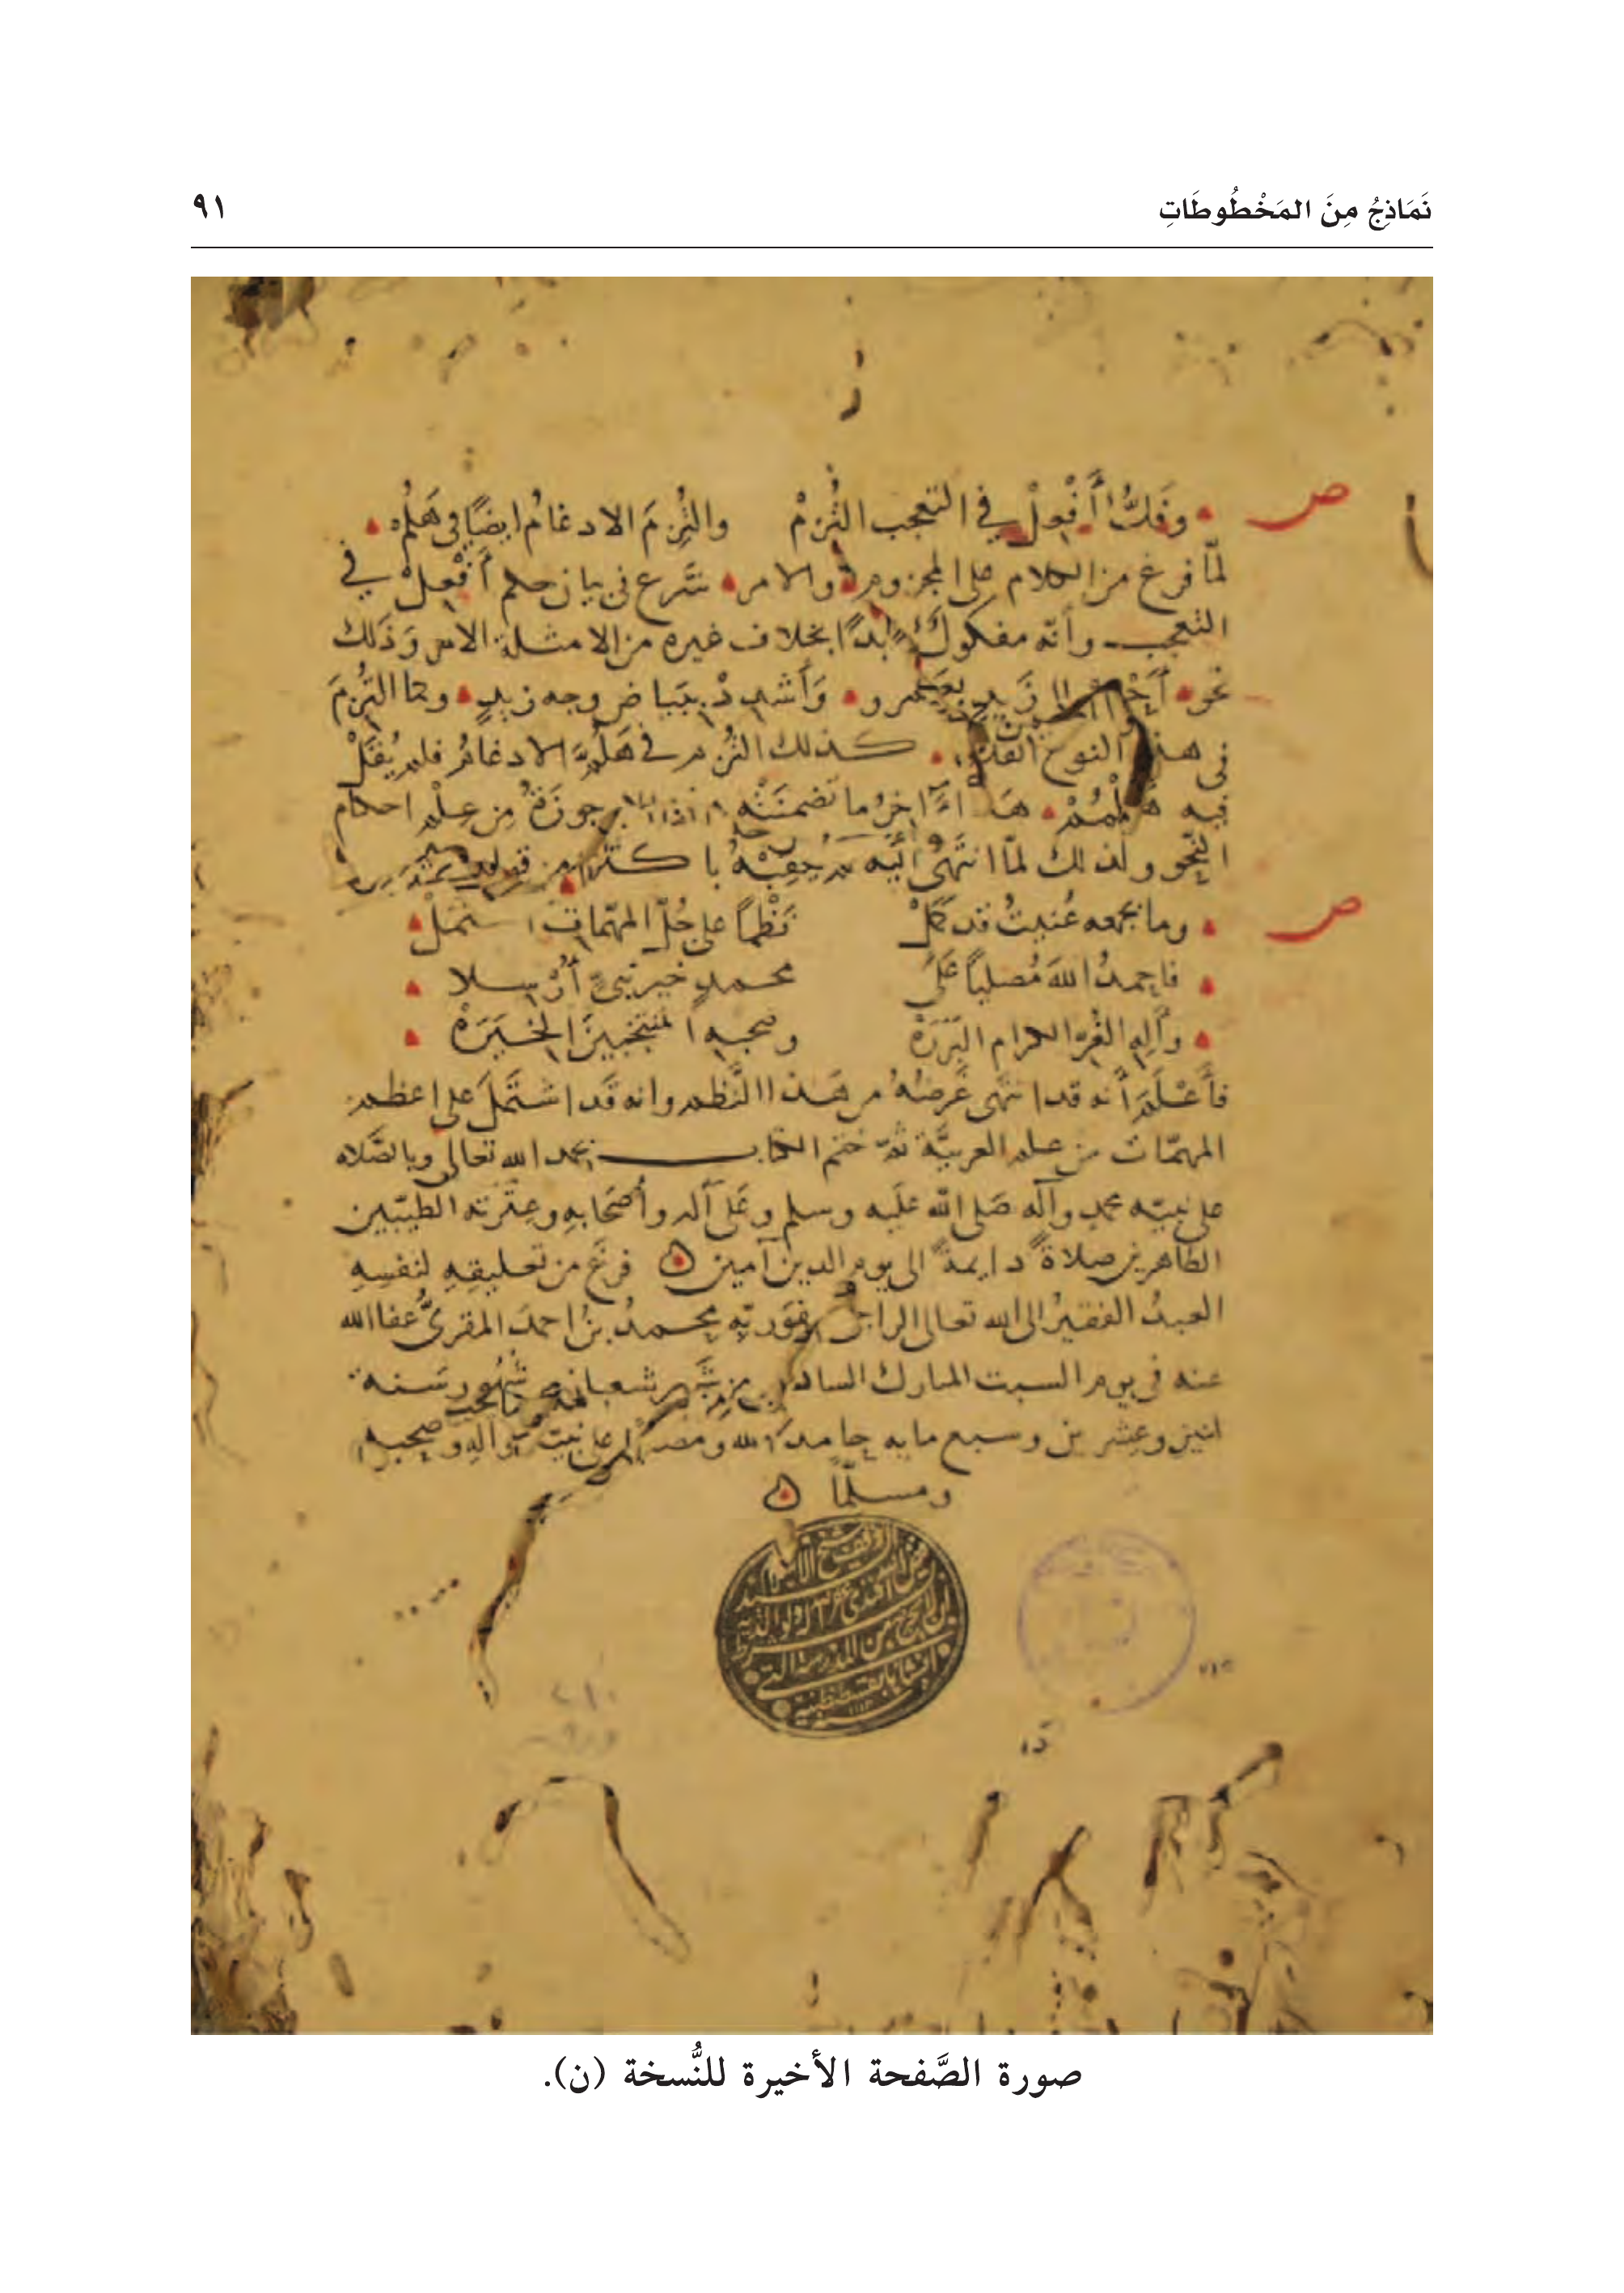 نَمَاذِجُ مِنَ المَخْطُوطَاتِ
٩١
ص
وفَكُّ أَفْعِلْ في التعجب التُزِمْ والتُزِمَ الادغامُ ايضًا في هَلُمْ
لمّا فرغ من الكلام على المجزوم والامر شرع في بيان حكم أَفْعِلْ في
التعجب وأنّه مفكوكٌ ابدًا بخلاف غيره من الامثلة الامر وَذَلك
نحو زَيدٍ وَأَشْدِدْ ببَيَاض وجه زيدٍ وكما التُزِمَ
في هذا النوع الفكّ كذلك التُزم في هَلُمَّ الادغامُ فلم يُقَلْ
فيه هَلْمُمْ هَذا آخرُ ما تضمنَتْه جوزَةُ مِن عِلْم احكام
النّحو ولذلك لمّا انتهَى اليه من قوله
ص
وما بجمعه عُنيتُ قد كَمَلْ نَظْمًا على جُلّ المهمّات اشتملْ
فاحمدُ اللهَ مُصليًا عَلَى محمدٍ خير نبيٍّ أُرْسلا
وآلِهِ الغُرّ الكرام البَرَرَهْ وصحبِه المنتخبينَ الخِيَرَهْ
فأَعْلَمَ أنه قد انتهى غَرضُهُ من هَذا النَّظم وانه قَد اشتَمَلَ على اعظم
المهمّات من علم العربيَّة ثمّ ختم الكتاب بحمد الله تعالى وبالصّلاه
على نبيّه محمدٍ وآله صَلى الله عَليه وسلم وعَلى آله وأصْحَابه وعِتْرَته الطيّبين
الطاهرين صلاةً دايمةً الى يوم الدين آمين فرغ من تعليقِهِ لنفسِهِ
العبدُ الفقيرُ الى الله تعالى الراجي عفوَ ربّه محمدُ بنُ احمدَ المقرئُ عفا الله
عنه في يوم السبت المبارك السادس من شهر شعبان من شهور سَنة
اثنين وعشرين وسبع مايه حامدًا لله ومصليًا على نبيّه وآلِهِ وَصحبه
ومسلّمًا
صورة الصَّفحة الأخيرة للنُّسخة (ن).